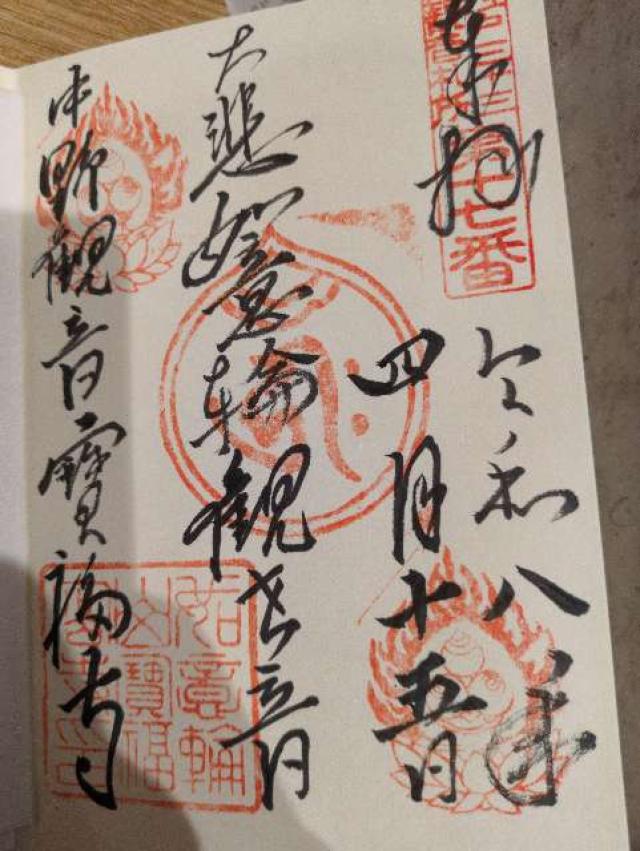 奉拝
第十七番
令和八年
四月十五日
大悲如意輪観世音
中野観音寶福寺
如意輪
山寶福